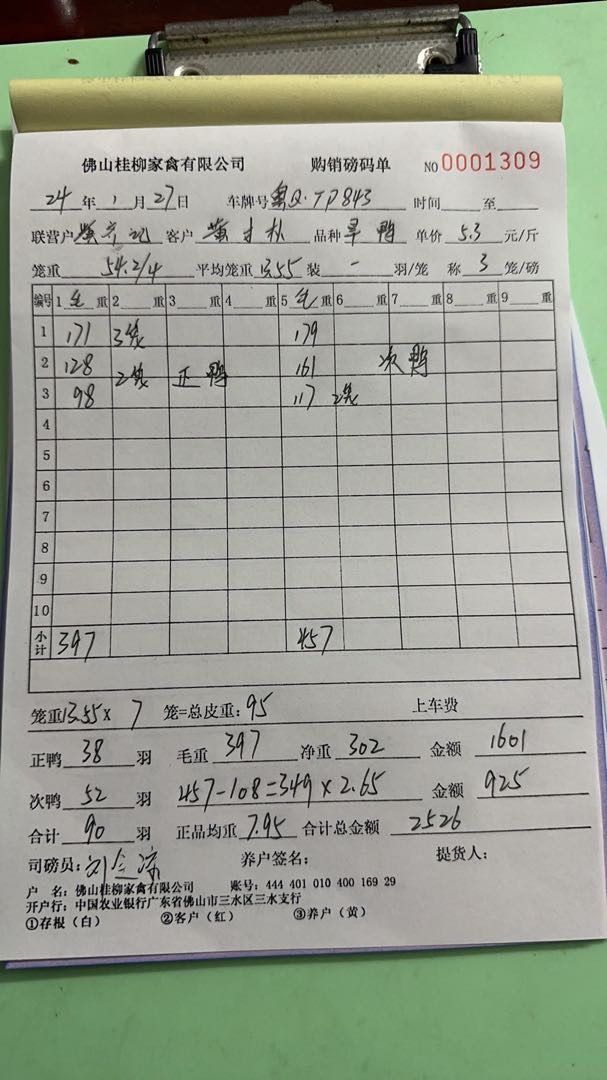 佛山桂柳家禽有限公司 购销磅码单 NO 0001309
24 年 1 月 27 日 车牌号 粤Q·TP843 时间 至
联营户 客户 品种 旱鸭 单价 5.3 元/斤
笼重 54.2/4 平均笼重 13.55 装 - 羽/笼 称 3 笼/磅
编号 1 毛 重 2 重 3 重 4 重 5 毛 重 6 重 7 重 8 重 9 重
1 171 3笼 179
2 128 2笼 正鸭 161 次鸭
3 98 117 2笼
4
5
6
7
8
9
10
小计 397 457
笼重 13.55 x 7 笼=总皮重: 95 上车费
正鸭 38 羽 毛重 397 净重 302 金额 1601
次鸭 52 羽 457-108=349×2.65 金额 925
合计 90 羽 正品均重 7.95 合计总金额 2526
司磅员: 刘 养户签名: 提货人:
户 名: 佛山桂柳家禽有限公司 账号: 444 401 010 400 169 29
开户行: 中国农业银行广东省佛山市三水区三水支行
①存根（白） ②客户（红） ③养户（黄）